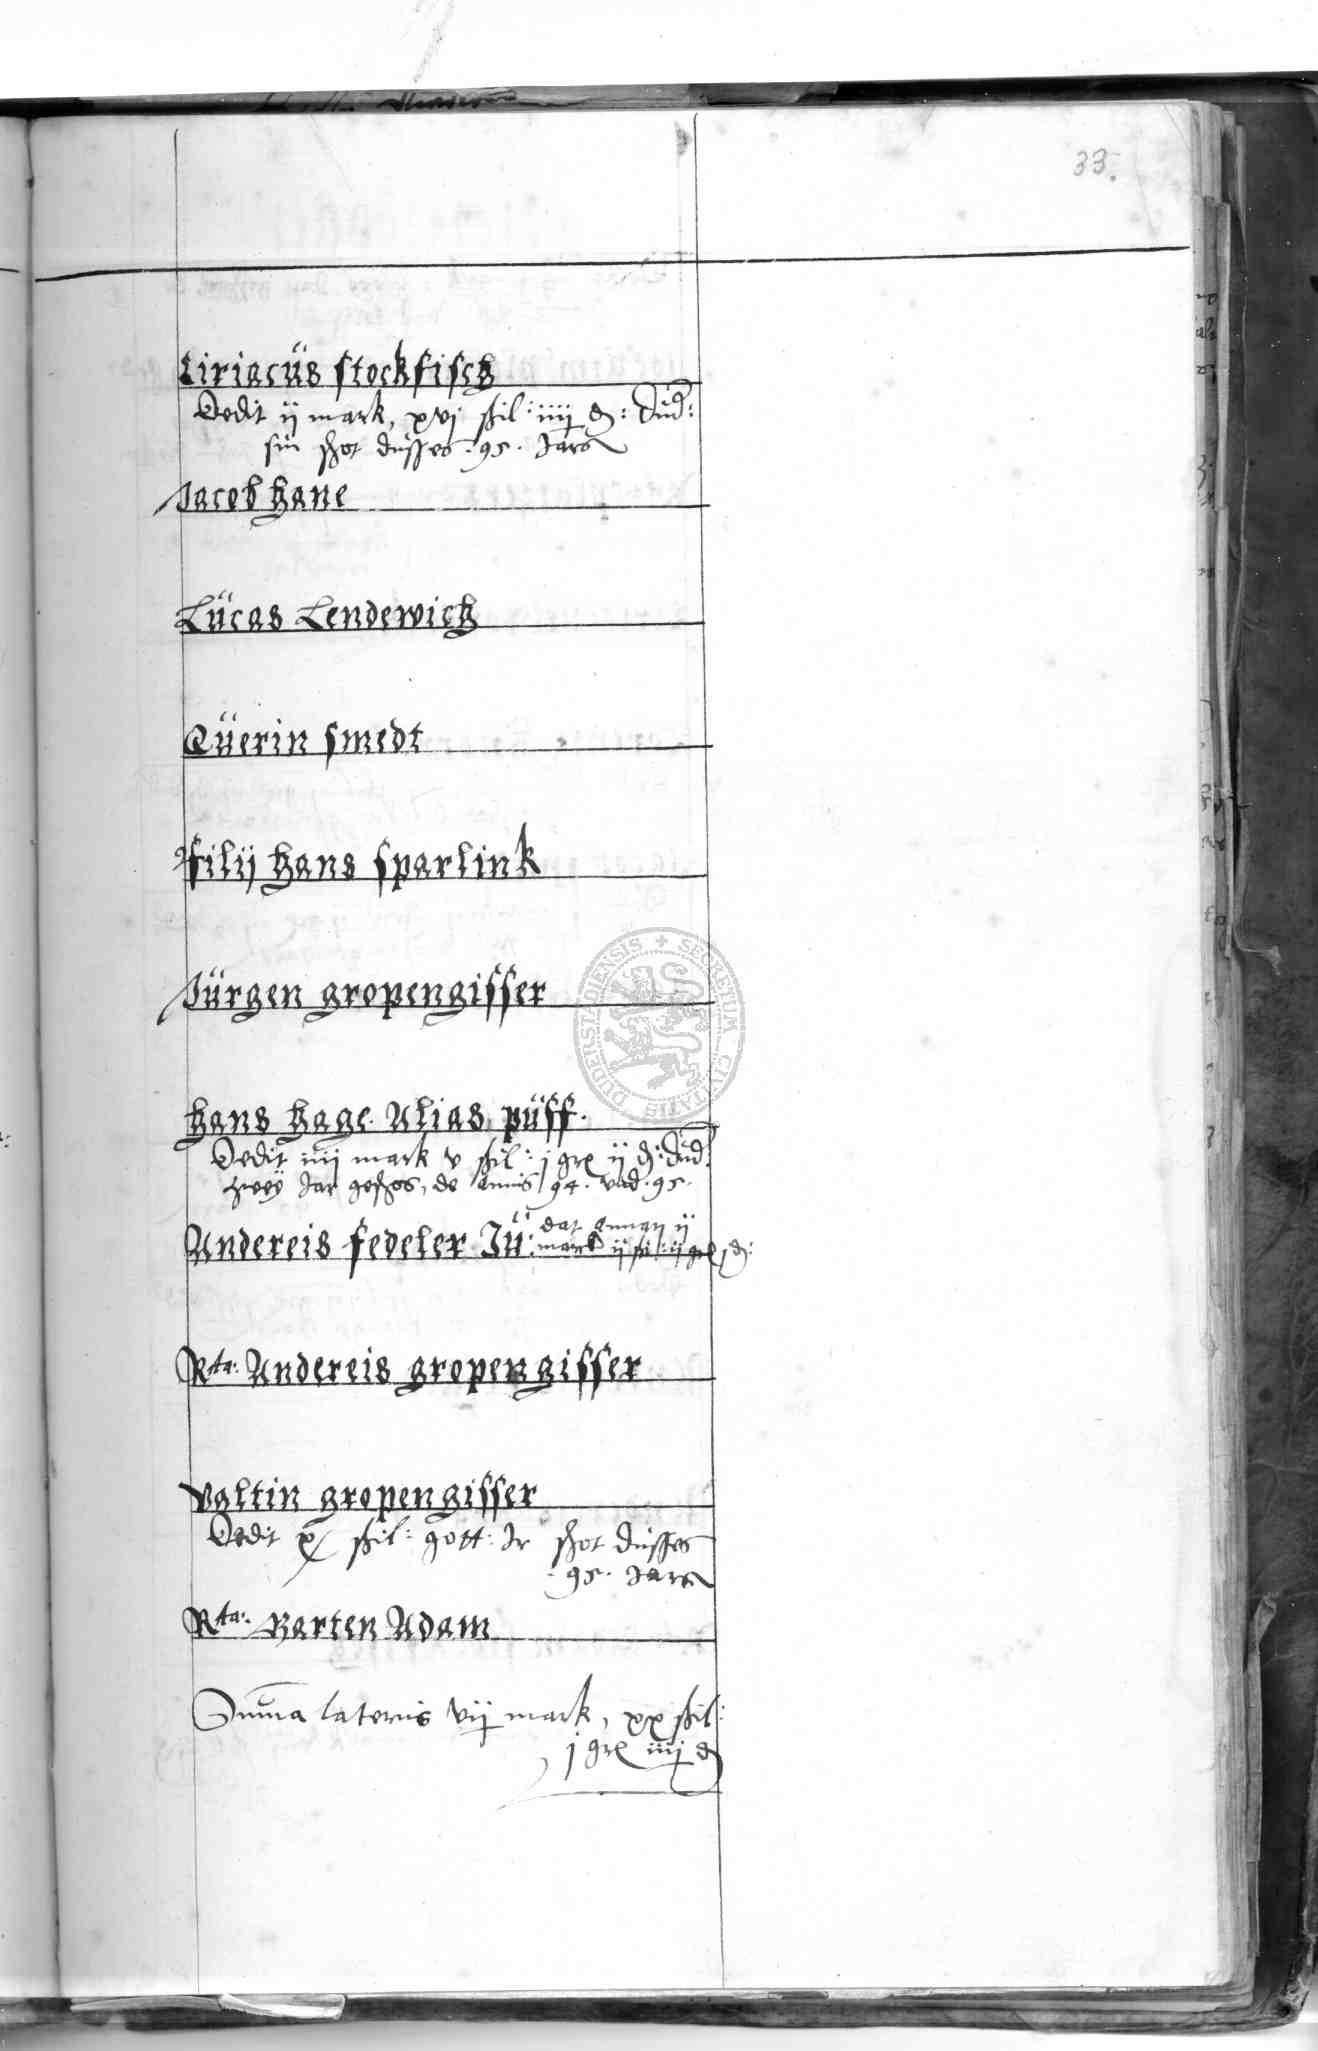 33.
Ciriacüs stockfisch
Dedit ij mark, xvj shil: iiij d: dud:
sin shot dusses .95. Jars
Jacob hane
Lücas Lendewich
Qüerin smedt
ffilij hans sparlink
Jürgen gropengisser
hans hage Alias püff.
Dedit iiij mark v shil: j gr ij d: dud
zwey Jar geshos, de annis 94. vnd .95.
Andereis fedeler Jü: dat gnnan ij
mark ij sh: ij gr j d:
Rta: Andereis gropengisser
valtin gropengisser
Dedit x shil: gott: Jr shot dusses
.95. Jars
Rta: Barten Adam
Summa lateris vij mark, xx shil:
j gr iiij d
SECRETUM CIVITATIS DUDERSTADIENSIS